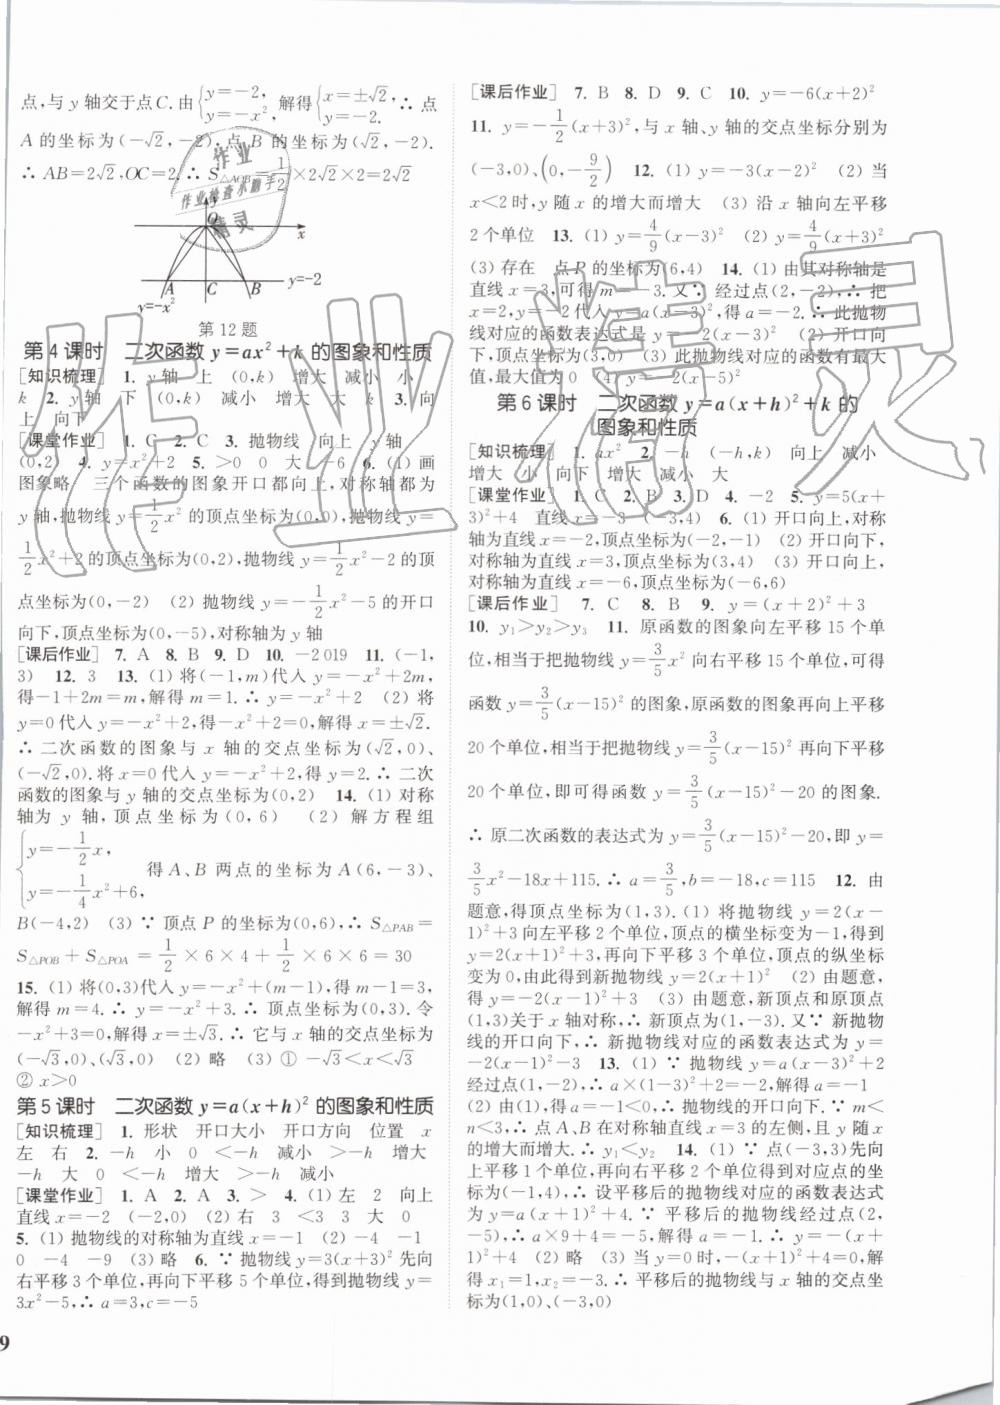 点,与 y 轴交于点C. 由{y=-2, y=-x². 解得{x=±√2, y=-2. ∴ 点
A 的坐标为(-√2,-2),点 B 的坐标为(√2,-2).
∴ AB=2√2,OC=2. ∴ S△AOB=1/2×2√2×2=2√2
y
O
x
A C B
y=-2
y=-x²
第 12 题
第 4 课时 二次函数 y=ax²+k 的图象和性质
[知识梳理] 1. y 轴 上 (0,k) 增大 减小 小
k 2. y 轴 下 (0,k) 减小 增大 大 k 3. 向
上 向下
[课堂作业] 1. C 2. C 3. 抛物线 向上 y 轴
(0,2) 4. y=x²+2 5. >0 0 大 -6 6. (1) 画
图象略 三个函数的图象开口都向上,对称轴都为
y 轴,抛物线 y=1/2x² 的顶点坐标为(0,0),抛物线 y=
1/2x²+2 的顶点坐标为(0,2),抛物线 y=1/2x²-2 的顶
点坐标为(0,-2) (2) 抛物线 y=-1/2x²-5 的开口
向下,顶点坐标为(0,-5),对称轴为 y 轴
[课后作业] 7. A 8. B 9. D 10. -2 019 11. (-1,
3) 12. 3 13. (1) 将(-1,m)代入 y=-x²+2m,
得-1+2m=m,解得 m=1. ∴ y=-x²+2 (2) 将
y=0代入 y=-x²+2,得-x²+2=0,解得 x=±√2.
∴ 二次函数的图象与 x 轴的交点坐标为(√2,0)、
(-√2,0). 将 x=0代入 y=-x²+2,得 y=2. ∴ 二次
函数的图象与 y 轴的交点坐标为(0,2) 14. (1) 对称
轴为 y 轴,顶点坐标为(0,6) (2) 解方程组
{y=-1/2x, y=-1/4x²+6, 得 A、B 两点的坐标为 A(6,-3)、
B(-4,2) (3) ∵ 顶点 P 的坐标为(0,6),∴ S△PAB=
S△POB+S△POA=1/2×6×4+1/2×6×6=30
15. (1) 将(0,3)代入 y=-x²+(m-1),得 m-1=3,
解得 m=4. ∴ y=-x²+3. ∴ 顶点坐标为(0,3). 令
-x²+3=0,解得 x=±√3. ∴ 它与 x 轴的交点坐标为
(-√3,0)、(√3,0) (2) 略 (3) ① -√3<x<√3
② x>0
第 5 课时 二次函数 y=a(x+h)² 的图象和性质
[知识梳理] 1. 形状 开口大小 开口方向 位置 x
左 右 2. -h 小 0 <-h 减小 >-h 增大
-h 大 0 <-h 增大 >-h 减小
[课堂作业] 1. A 2. A 3. > 4. (1) 左 2 向上
直线 x=-2 (-2,0) (2) 右 3 <3 3 大 0
5. (1) 抛物线的对称轴为直线 x=-1 (2) -4 -1
0 -4 -9 (3) 略 6. ∵ 抛物线 y=3(x+3)² 先向
右平移 3 个单位,再向下平移 5 个单位,得到抛物线 y=
3x²-5,∴ a=3,c=-5
9
[课后作业] 7. B 8. D 9. C 10. y=-6(x+2)²
11. y=-1/2(x+3)²,与 x 轴、y 轴的交点坐标分别为
(-3,0)、(0,-9/2) 12. (1) y=-3(x-2)² (2) 当
x<2时,y 随 x 的增大而增大 (3) 沿 x 轴向左平移
2 个单位 13. (1) y=4/9(x-3)² (2) y=4/9(x+3)²
(3) 存在 点 P 的坐标为(6,4) 14. (1) 由其对称轴是
直线 x=3,可得 m=-3. 又∵ 经过点(2,-2),∴ 把
x=2,y=-2代入 y=a(x-3)²,得 a=-2. ∴ 此抛物
线对应的函数表达式是 y=-2(x-3)² (2) 开口向
下,顶点坐标为(3,0) (3) 此抛物线对应的函数有最大
值,最大值为 0 (4) y=-2(x-5)²
第 6 课时 二次函数 y=a(x+h)²+k 的
图象和性质
[知识梳理] 1. ax² 2. -h (-h,k) 向上 减小
增大 小 向下 增大 减小 大
[课堂作业] 1. C 2. B 3. D 4. -2 5. y=5(x+
3)²+4 直线 x=-3 (-3,4) 6. (1) 开口向上,对称
轴为直线 x=-2,顶点坐标为(-2,-1) (2) 开口向下,
对称轴为直线 x=3,顶点坐标为(3,4) (3) 开口向下,
对称轴为直线 x=-6,顶点坐标为(-6,6)
[课后作业] 7. C 8. B 9. y=(x+2)²+3
10. y₁>y₂>y₃ 11. 原函数的图象向左平移 15 个单
位,相当于把抛物线 y=3/5x² 向右平移15个单位,可得
函数 y=3/5(x-15)² 的图象,原函数的图象再向上平移
20 个单位,相当于把抛物线 y=3/5(x-15)² 再向下平移
20 个单位,即可得函数 y=3/5(x-15)²-20 的图象.
∴ 原二次函数的表达式为 y=3/5(x-15)²-20,即 y=
3/5x²-18x+115. ∴ a=3/5,b=-18,c=115 12. 由
题意,得顶点坐标为(1,3). (1) 将抛物线 y=2(x-
1)²+3 向左平移 2 个单位,顶点的横坐标变为-1,得到
y=2(x+1)²+3,再向下平移 3 个单位,顶点的纵坐标
变为 0,由此得到新抛物线 y=2(x+1)² (2) 由题意,
得 y=-2(x-1)²+3 (3) 由题意,新顶点和原顶点
(1,3)关于 x 轴对称,∴ 新顶点为(1,-3). 又∵ 新抛物
线的开口向下,∴ 新抛物线对应的函数表达式为 y=
-2(x-1)²-3 13. (1) ∵ 抛物线 y=a(x-3)²+2
经过点(1,-2),∴ a×(1-3)²+2=-2,解得 a=-1
(2) 由(1),得 a=-1<0,∴ 抛物线的开口向下. ∵ m<
n<3,∴ 点 A、B 在对称轴直线 x=3 的左侧,且 y 随 x
的增大而增大. ∴ y₁<y₂ 14. (1) ∵ 点(-3,3)先向
上平移 1 个单位,再向右平移 2 个单位得到对应点的坐
标为(-1,4),∴ 设平移后的抛物线对应的函数表达式
为 y=a(x+1)²+4. ∵ 平移后的抛物线经过点(2,
-5),∴ a×9+4=-5,解得 a=-1. ∴ y=-(x+
1)²+4 (2) 略 (3) 当 y=0时,-(x+1)²+4=0,解得
x₁=1,x₂=-3. ∴ 平移后的抛物线与 x 轴的交点坐
标为(1,0)、(-3,0)
作业
作业检查小助手
精灵
作业精灵